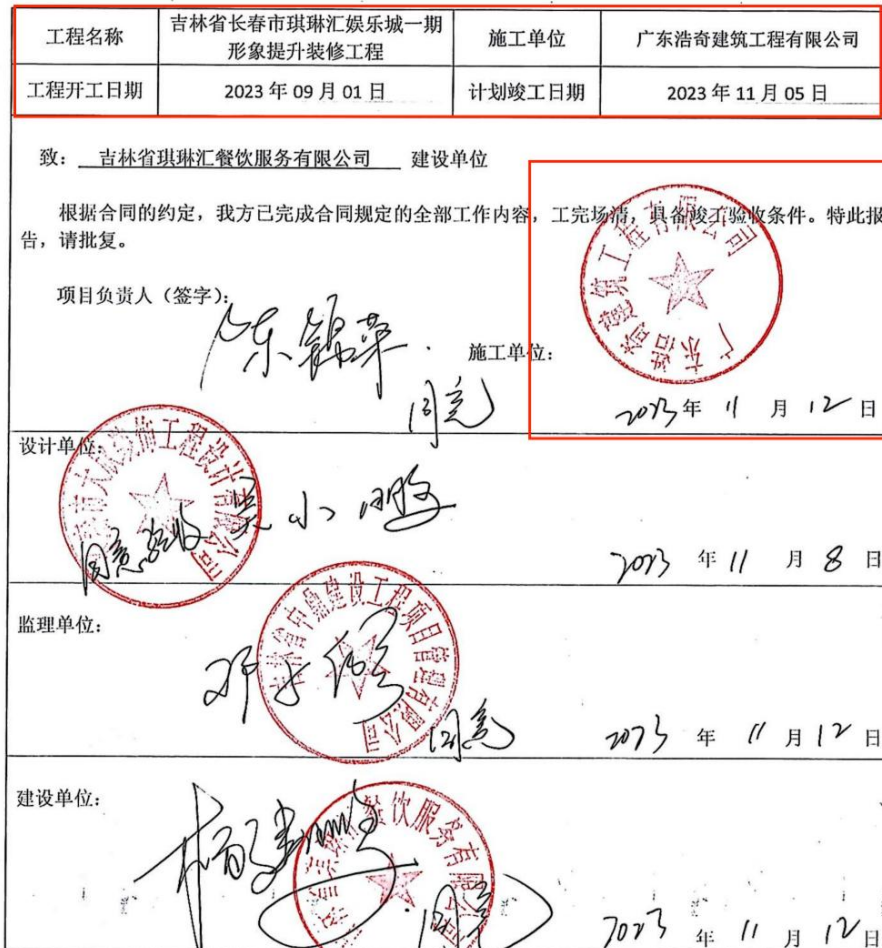 工程名称 吉林省长春市琪琳汇娱乐城一期形象提升装修工程 施工单位 广东浩奇建筑工程有限公司
工程开工日期 2023 年 09 月 01 日 计划竣工日期 2023 年 11 月 05 日
致： 吉林省琪琳汇餐饮服务有限公司 建设单位
根据合同的约定，我方已完成合同规定的全部工作内容，工完场清，具备竣工验收条件。特此报
告，请批复。
项目负责人（签字）：
施工单位：
广东浩奇建筑工程有限公司
同意
2023 年 11 月 12 日
设计单位：
装饰工程设计有限公司
同意验收
2023 年 11 月 8 日
监理单位：
吉林省中鼎建设工程项目管理有限公司
同意
2023 年 11 月 12 日
建设单位：
餐饮服务有限
同意
2023 年 11 月 12 日